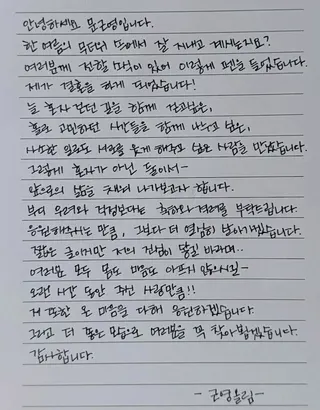 안녕하세요 문군영입니다.
한 여름의 무더위 속에서 잘 지내고 계시는지요?
여러분께 전할 소식이 있어 이렇게 펜을 들었습니다.
제가 결혼을 하게 되었습니다!
늘 혼자 걷던 길을 함께 걷고싶은,
홀로 고민하던 시간들을 함께 나누고 싶은,
사소한 일로도 서로를 웃게 해주고 싶은 사람을 만났습니다.
그렇게 혼자가 아닌 둘이서-
앞으로의 삶을 채워 나가보고자 합니다.
부디 우려와 걱정보다는 축하와 격려를 부탁드립니다.
응원해주시는 만큼, 그보다 더 열심히 살아가겠습니다.
짧은 글이지만 저의 진심이 닿길 바라며..
여러분 모두 몸도 마음도 아프지 않으시길-
오랜 시간 동안 주신 사랑만큼!!
저 또한 온 마음을 다해 응원하겠습니다.
그리고 더 좋은 모습으로 여러분을 꼭 찾아뵙겠습니다.
감사합니다.
- 군영올림 -